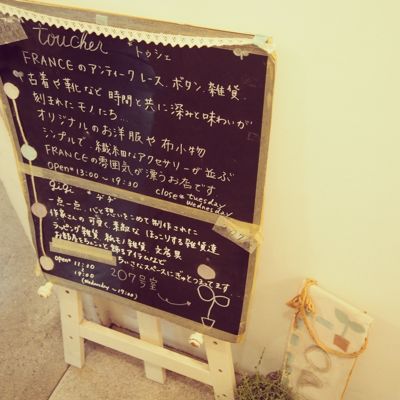 toucher
・トゥシェ
FRANCEのアンティークレース、ボタン、雑貨
古着や靴など時間と共に深みと味わいが
刻まれたモノたち…
オリジナルのお洋服や布小物
シンプルで、繊細なアクセサリーが並ぶ
FRANCEの雰囲気が漂うお店です
open* 13:00〜19:30 close* tuesday
wednesday
gigi * ジジ
一点一点、心を想いをこめて制作された
作家さんの可愛く、素敵な ほっこりする雑貨達
ラッピング雑貨 紙モノ雑貨 文房具
お部屋をちょこっと飾るアイテムなど
ちいさなスペースにぎゅとつまってます
open* 11:00
19:00
207号室
(Wednesday〜17:00)